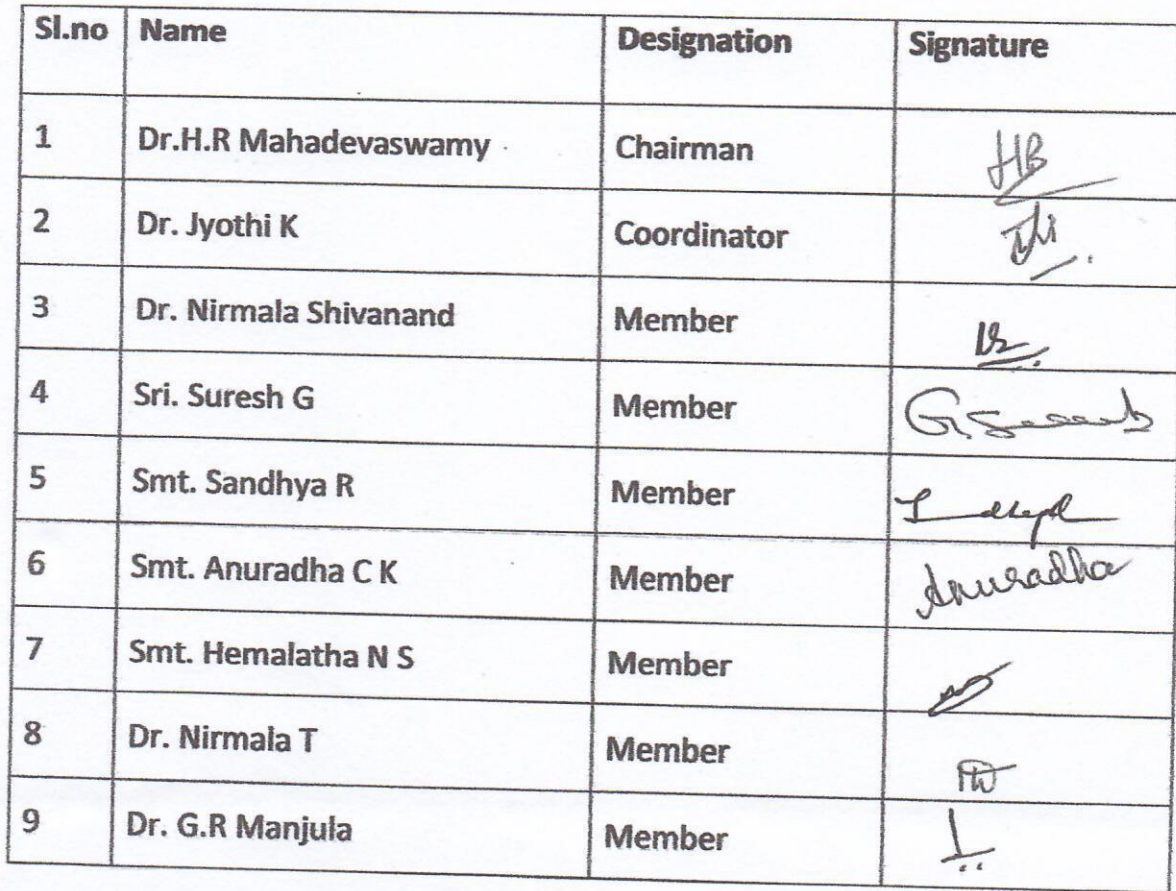 Sl.no Name Designation Signature
1 Dr.H.R Mahadevaswamy Chairman HB
2 Dr. Jyothi K Coordinator
3 Dr. Nirmala Shivanand Member
4 Sri. Suresh G Member
5 Smt. Sandhya R Member
6 Smt. Anuradha C K Member Anuradha
7 Smt. Hemalatha N S Member
8 Dr. Nirmala T Member
9 Dr. G.R Manjula Member